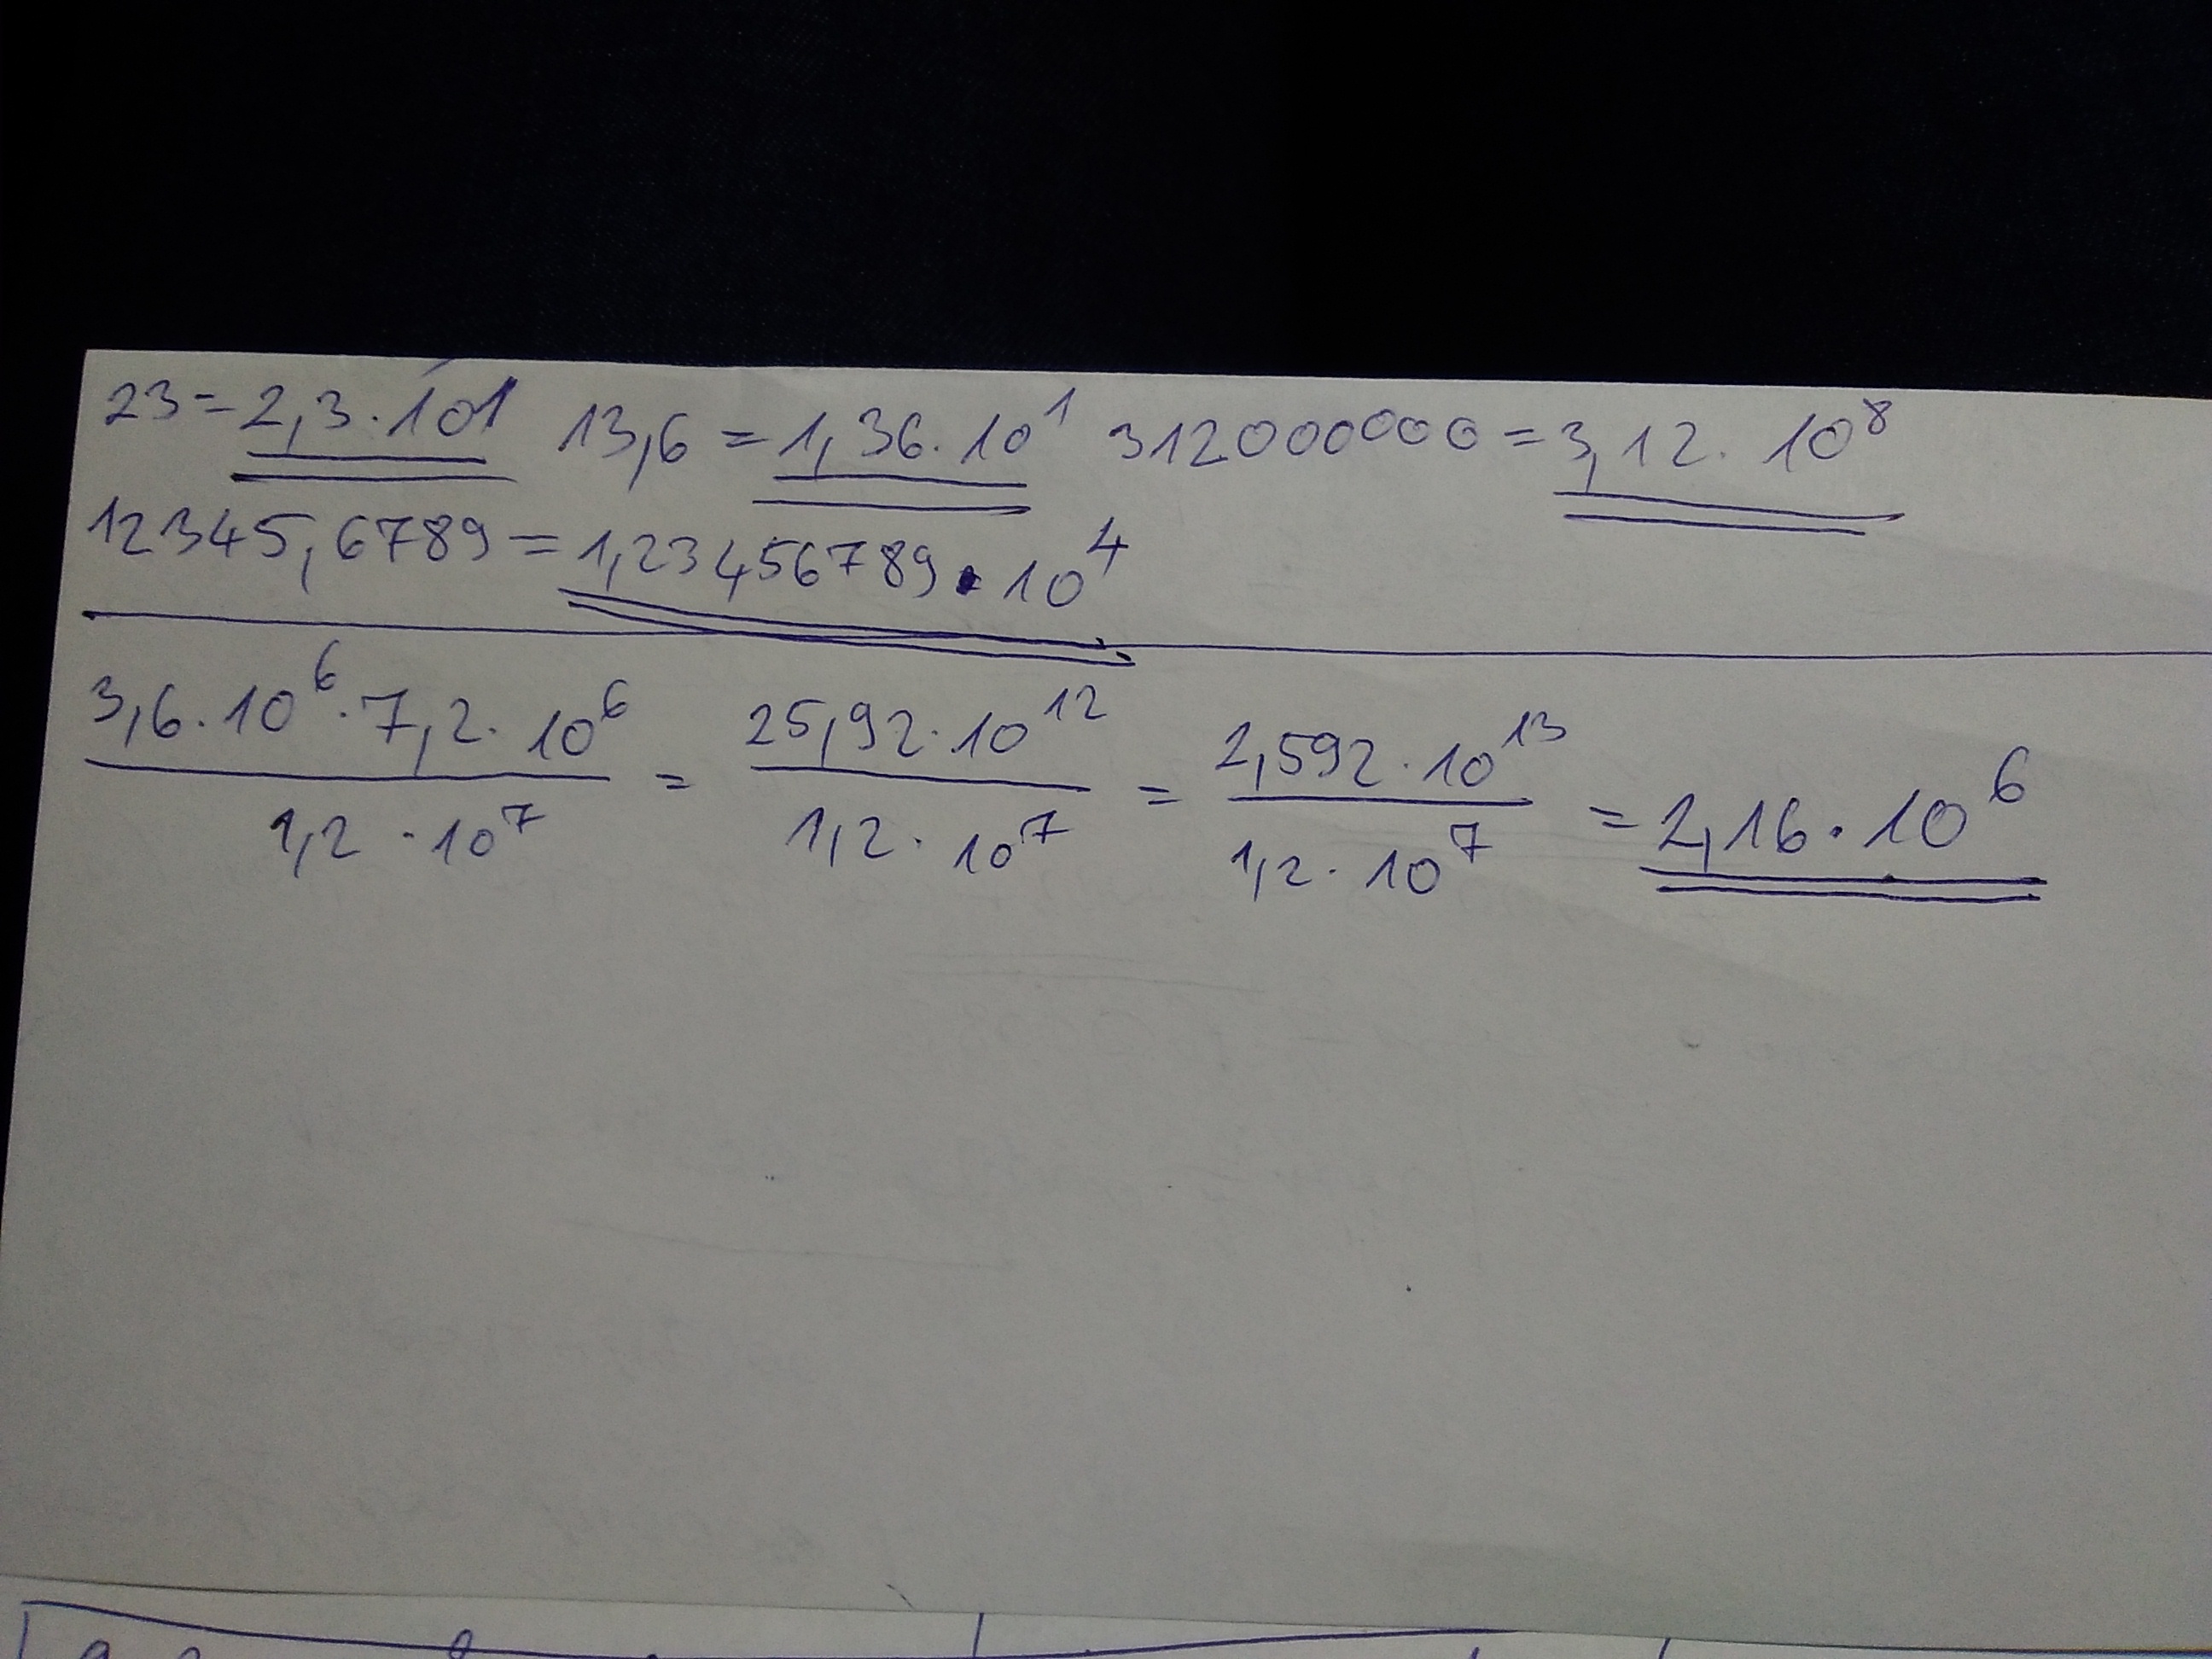 23 = 2,3 · 10¹ 13,6 = 1,36 · 10¹ 312000000 = 3,12 · 10⁸
12345,6789 = 1,23456789 · 10⁴
3,6 · 10⁶ · 7,2 · 10⁶ / 1,2 · 10⁷ = 25,92 · 10¹² / 1,2 · 10⁷ = 2,592 · 10¹³ / 1,2 · 10⁷ = 2,16 · 10⁶